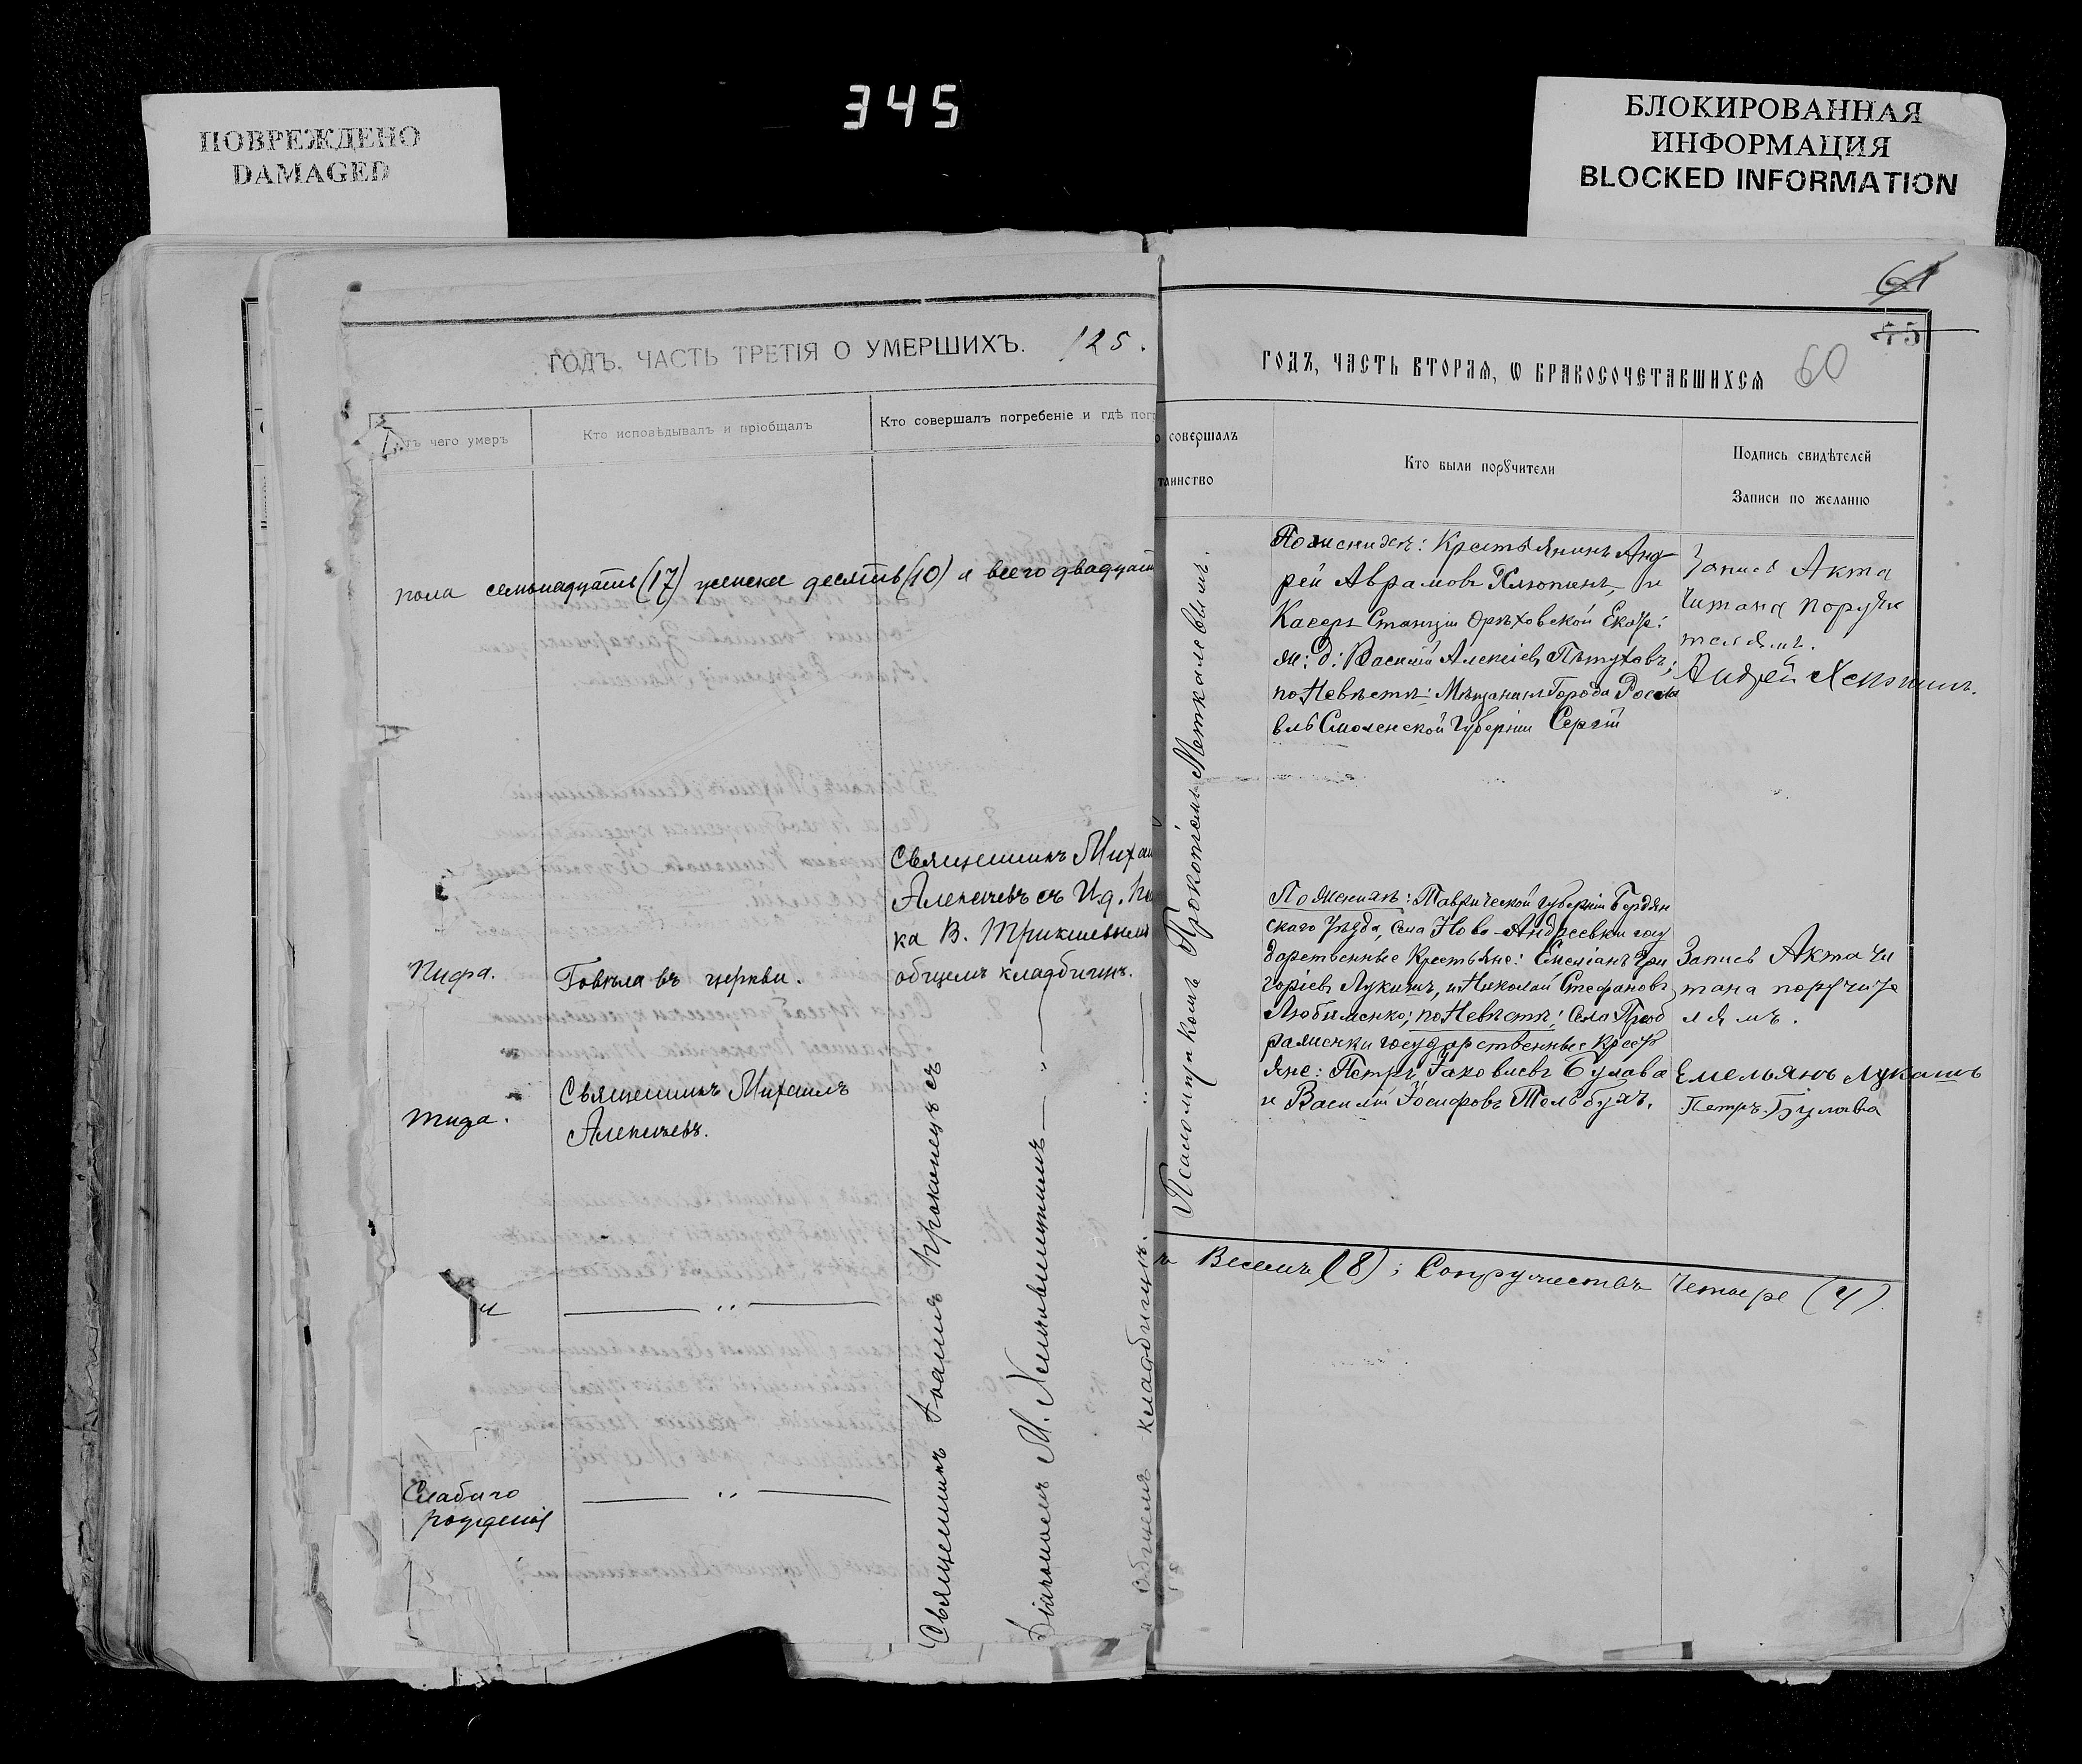 345
ПОВРЕЖДЕНО
DAMAGED
БЛОКИРОВАННАЯ
ИНФОРМАЦИЯ
BLOCKED INFORMATION
ГОДЪ. ЧАСТЬ ТРЕТІЯ О УМЕРШИХЪ. 125.
тъ чего умеръ
Кто исповѣдывалъ и пріобщалъ
Кто совершалъ погребеніе и гдѣ погр
пола семьнадцать (17) женска десять (10) а всего двадцат
Священникъ Миха
Алексѣевъ съ И.д.
ка В.
общемъ кладбищѣ.
Говѣла въ церкви.
Священникъ Михаилъ
Алексѣевъ.
— „ —
Слабаго
рожденія
— „ —
Священникъ Іоаннъ Прокопецъ съ
Діакономъ М.
на общемъ кладбищѣ.
61
75
60
ГОДЪ, ЧАСТЬ ВТОРАЯ, Ѡ БРАКОСОЧЕТАВШИХСЯ
о совершалъ
таинство
Кто были поручители
Подпись свидѣтелей
Записи по желанію
Псаломщикомъ Прокопіемъ Меткалевымъ.
По женихѣ: Крестьянинъ Анд
рей Аврамовъ Клюпинъ, и
Касеръ Станціи Орѣховской Екатер:
ж: д: Василій Алексіевъ Пѣтуховъ;
по Невѣстѣ: Мѣщанинъ Города Росла
вль Смоленской Губерніи Сергій
Запись Акта
читана поручи
телямъ.
Андрей
По Женихѣ: Таврической Губерніи Бердян
скаго Уѣзда, Села Ново-Андреевки госу
дарственные Крестьяне: Емеліанъ Гри
горіевъ Лукашъ, и Николай Стефановъ
Любименко; по Невѣстѣ: Села Преоб
раженки государственные Кресть
яне: Петръ Іаковлевъ Булава
и Василій Іосифовъ Толбухъ.
Запись Акта чи
тана поручите
лямъ.
Емельянъ Лукашъ
Петръ Булава
ъ Восемь (8); Сопружествъ Четыре (4).